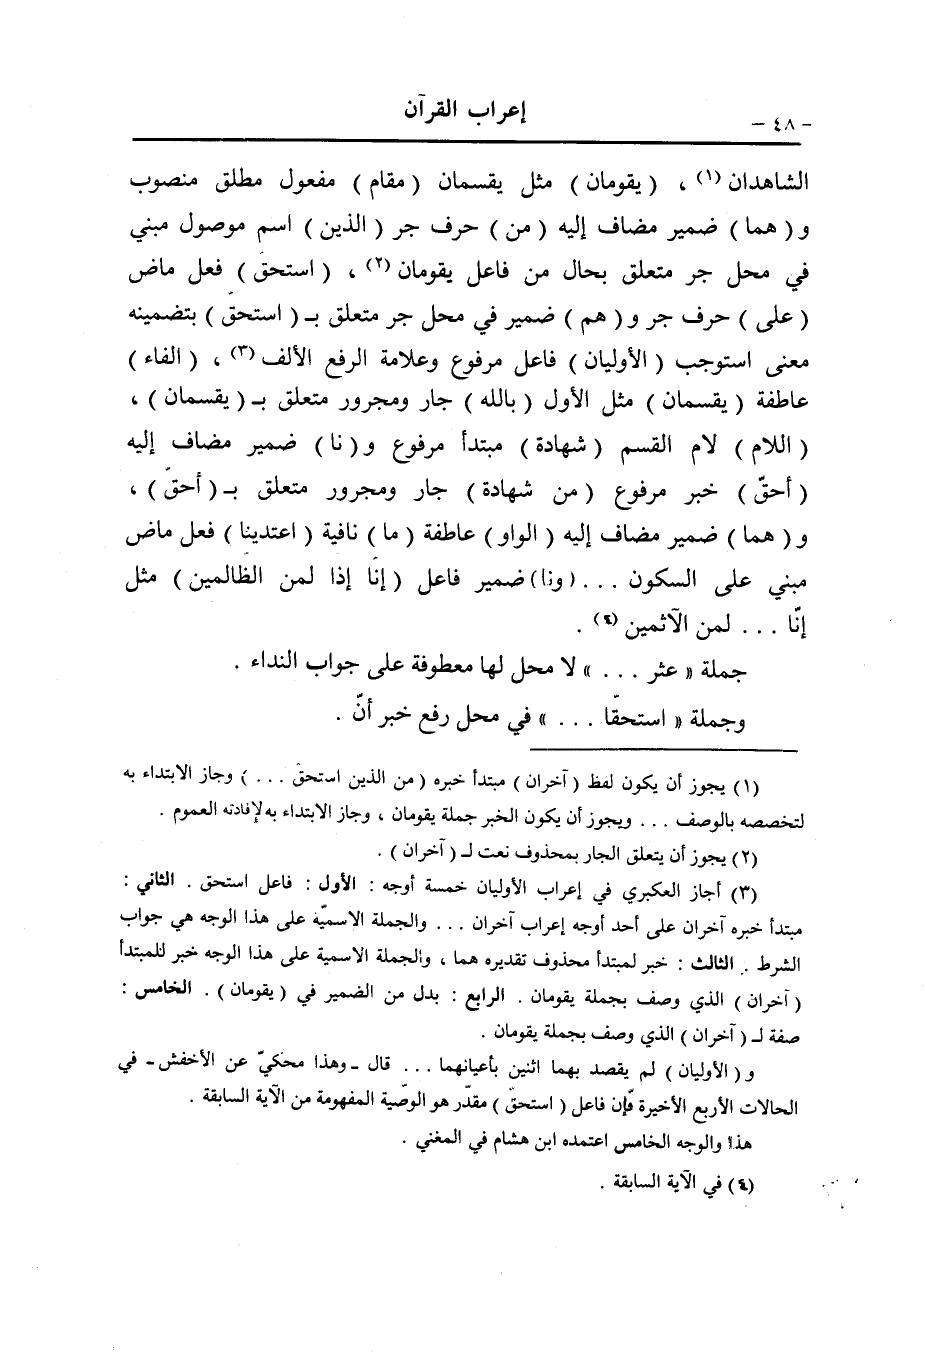 إعراب القرآن
- ٤٨ -
الشاهدان (١) ، ( يقومان ) مثل يقسمان ( مقام ) مفعول مطلق منصوب
و ( هما ) ضمير مضاف إليه ( من ) حرف جر ( الذين ) اسم موصول مبني
في محل جر متعلق بحال من فاعل يقومان (٢) ، ( استحقّ ) فعل ماض
( على ) حرف جر و ( هم ) ضمير في محل جر متعلق بـ ( استحقّ ) بتضمينه
معنى استوجب ( الأوليان ) فاعل مرفوع وعلامة الرفع الألف (٣) ، ( الفاء )
عاطفة ( يقسمان ) مثل الأول ( بالله ) جار ومجرور متعلق بـ ( يقسمان ) ،
( اللام ) لام القسم ( شهادة ) مبتدأ مرفوع و ( نا ) ضمير مضاف إليه
( أحقّ ) خبر مرفوع ( من شهادة ) جار ومجرور متعلق بـ ( أحقّ ) ،
و ( هما ) ضمير مضاف إليه ( الواو ) عاطفة ( ما ) نافية ( اعتدينا ) فعل ماض
مبني على السكون . . . ( ونا ) ضمير فاعل ( إنّا إذا لمن الظالمين ) مثل
إنّا . . . لمن الآثمين (٤) .
جملة « عثر . . . » لا محل لها معطوفة على جواب النداء .
وجملة « استحقّا . . . » في محل رفع خبر أنّ .
(١) يجوز أن يكون لفظ ( آخران ) مبتدأ خبره ( من الذين استحقّ . . . ) وجاز الابتداء به
لتخصصه بالوصف . . . ويجوز أن يكون الخبر جملة يقومان ، وجاز الابتداء به لإفادته العموم .
(٢) يجوز أن يتعلق الجار بمحذوف نعت لـ ( آخران ) .
(٣) أجاز العكبري في إعراب الأوليان خمسة أوجه : الأول : فاعل استحق . الثاني :
مبتدأ خبره آخران على أحد أوجه إعراب آخران . . . والجملة الاسميّة على هذا الوجه هي جواب
الشرط . الثالث : خبر لمبتدأ محذوف تقديره هما ، والجملة الاسمية على هذا الوجه خبر للمبتدأ
( آخران ) الذي وصف بجملة يقومان . الرابع : بدل من الضمير في ( يقومان ) . الخامس :
صفة لـ ( آخران ) الذي وصف بجملة يقومان .
و ( الأوليان ) لم يقصد بهما اثنين بأعيانهما . . . قال ـ وهذا محكيّ عن الأخفش ـ في
الحالات الأربع الأخيرة فإن فاعل ( استحقّ ) مقدّر هو الوصّية المفهومة من الآية السابقة .
هذا والوجه الخامس اعتمده ابن هشام في المغني .
(٤) في الآية السابقة .